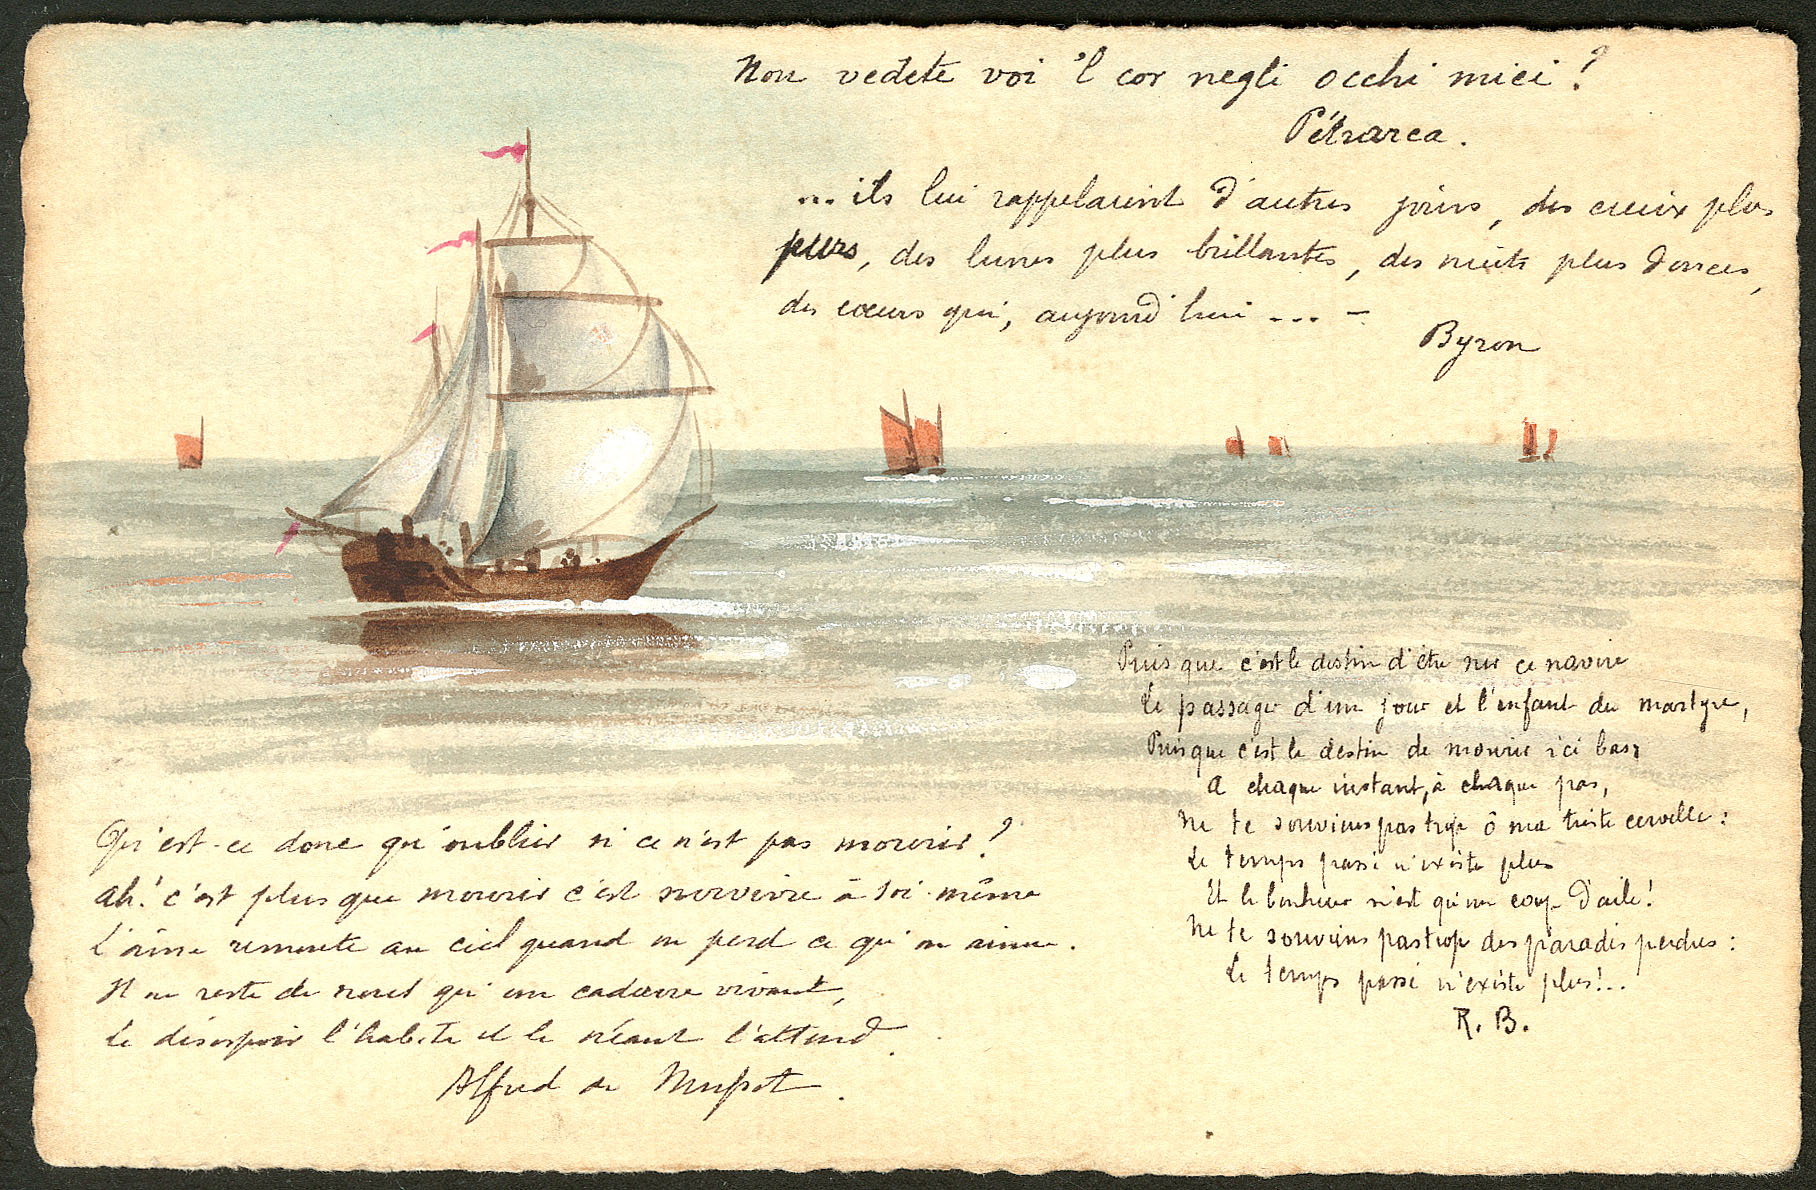 Non vedete voi 'l cor negli occhi miei ?
Pétrarca.
... ils lui rappelaient d'autres jours, des cieux plus
purs, des lunes plus brillantes, des nuits plus douces,
des cœurs qui, aujourd'hui ... -
Byron
Puis que c'est le destin d'être sur ce navire
Le passager d'un jour et l'enfant du martyre,
Puis que c'est le destin de mourir ici bas,
A chaque instant, à chaque pas,
Ne te souviens pas trop ô ma triste cervelle :
Le temps passé n'existe plus
Et le bonheur n'est qu'un coup d'aile !
Ne te souviens pas trop des paradis perdus :
Le temps passé n'existe plus !..
R. B.
Qu'est-ce donc qu'oublier si ce n'est pas mourir ?
ah ! c'est plus que mourir c'est survivre à soi-même
L'âme remonte au ciel quand on perd ce qu'on aime.
Il ne reste de nous qu'un cadavre vivant,
Le désespoir l'habite et le néant l'attend.
Alfred de Musset.